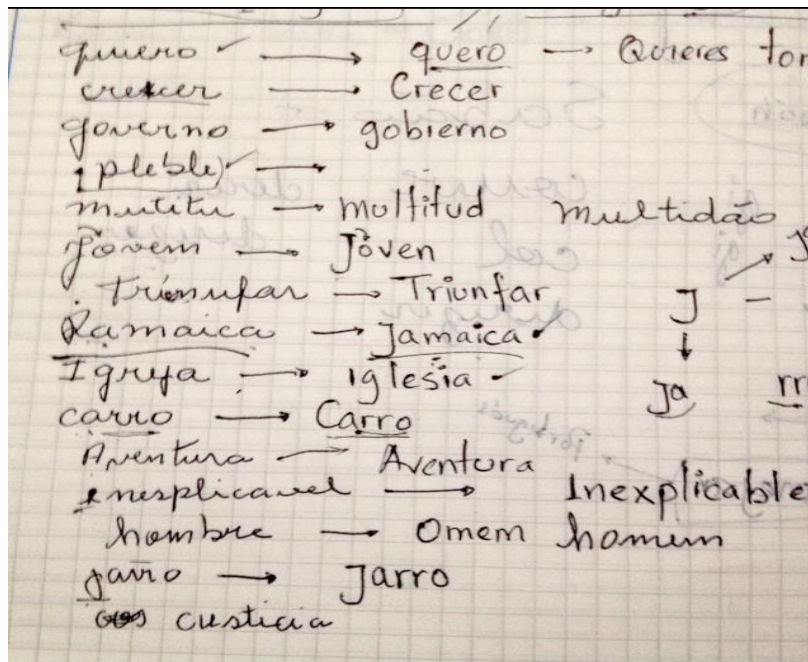 quiero → quero → Quieres tor
crexcer → Crecer
governo → gobierno
(pleble) →
mutitu → multitud multidão
Jovem → Jóven
Triunufar → Triunfar J
Jamaica → Jamaica
Igreja → iglesia Ja rr
carro → Carro
Aventura → Aventura
inesplicavel → Inexplicable
hombre → Omem homem
jarro → Jarro
custicia